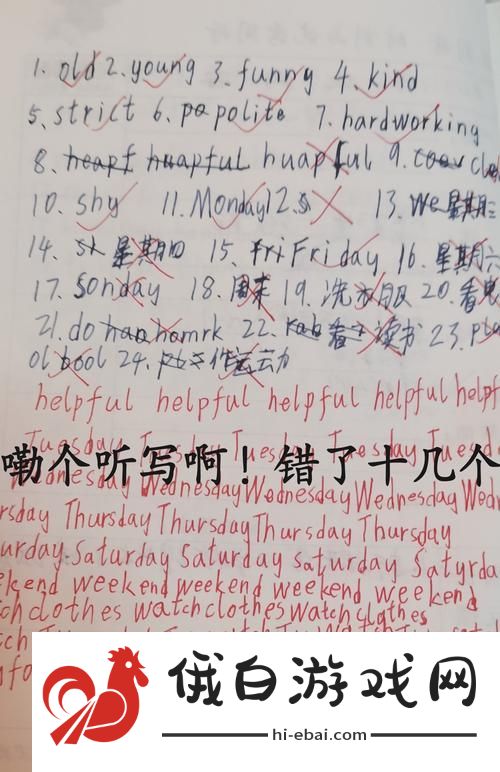 1. old 2. young 3. funny 4. kind
5. strict 6. po polite 7. hardworking
8. heapf huapful huapful 9.
10. shy 11. Monday 12. 13. We 星期三
14. 星期四 15. Fri Friday 16. 星期六
17. sonday 18. 周末 19. 洗衣服 20. 看
21. do hamrk 22. 看 读书 23.
24. 作运动
helpful helpful helpful helpful helpf
Tuesday Tuesday Tuesday Tuesday
嘞个听写啊！错了十几个
Wednesday Wednesday Wednesday Wednesday Wedn
rsday Thursday Thursday Thursday Thursday
urday Saturday Saturday saturday Satyrda
ekend weekend weekend weekend weekend
ch clothes watch clothes watch clothes
俄白游戏网
hi-ebai.com